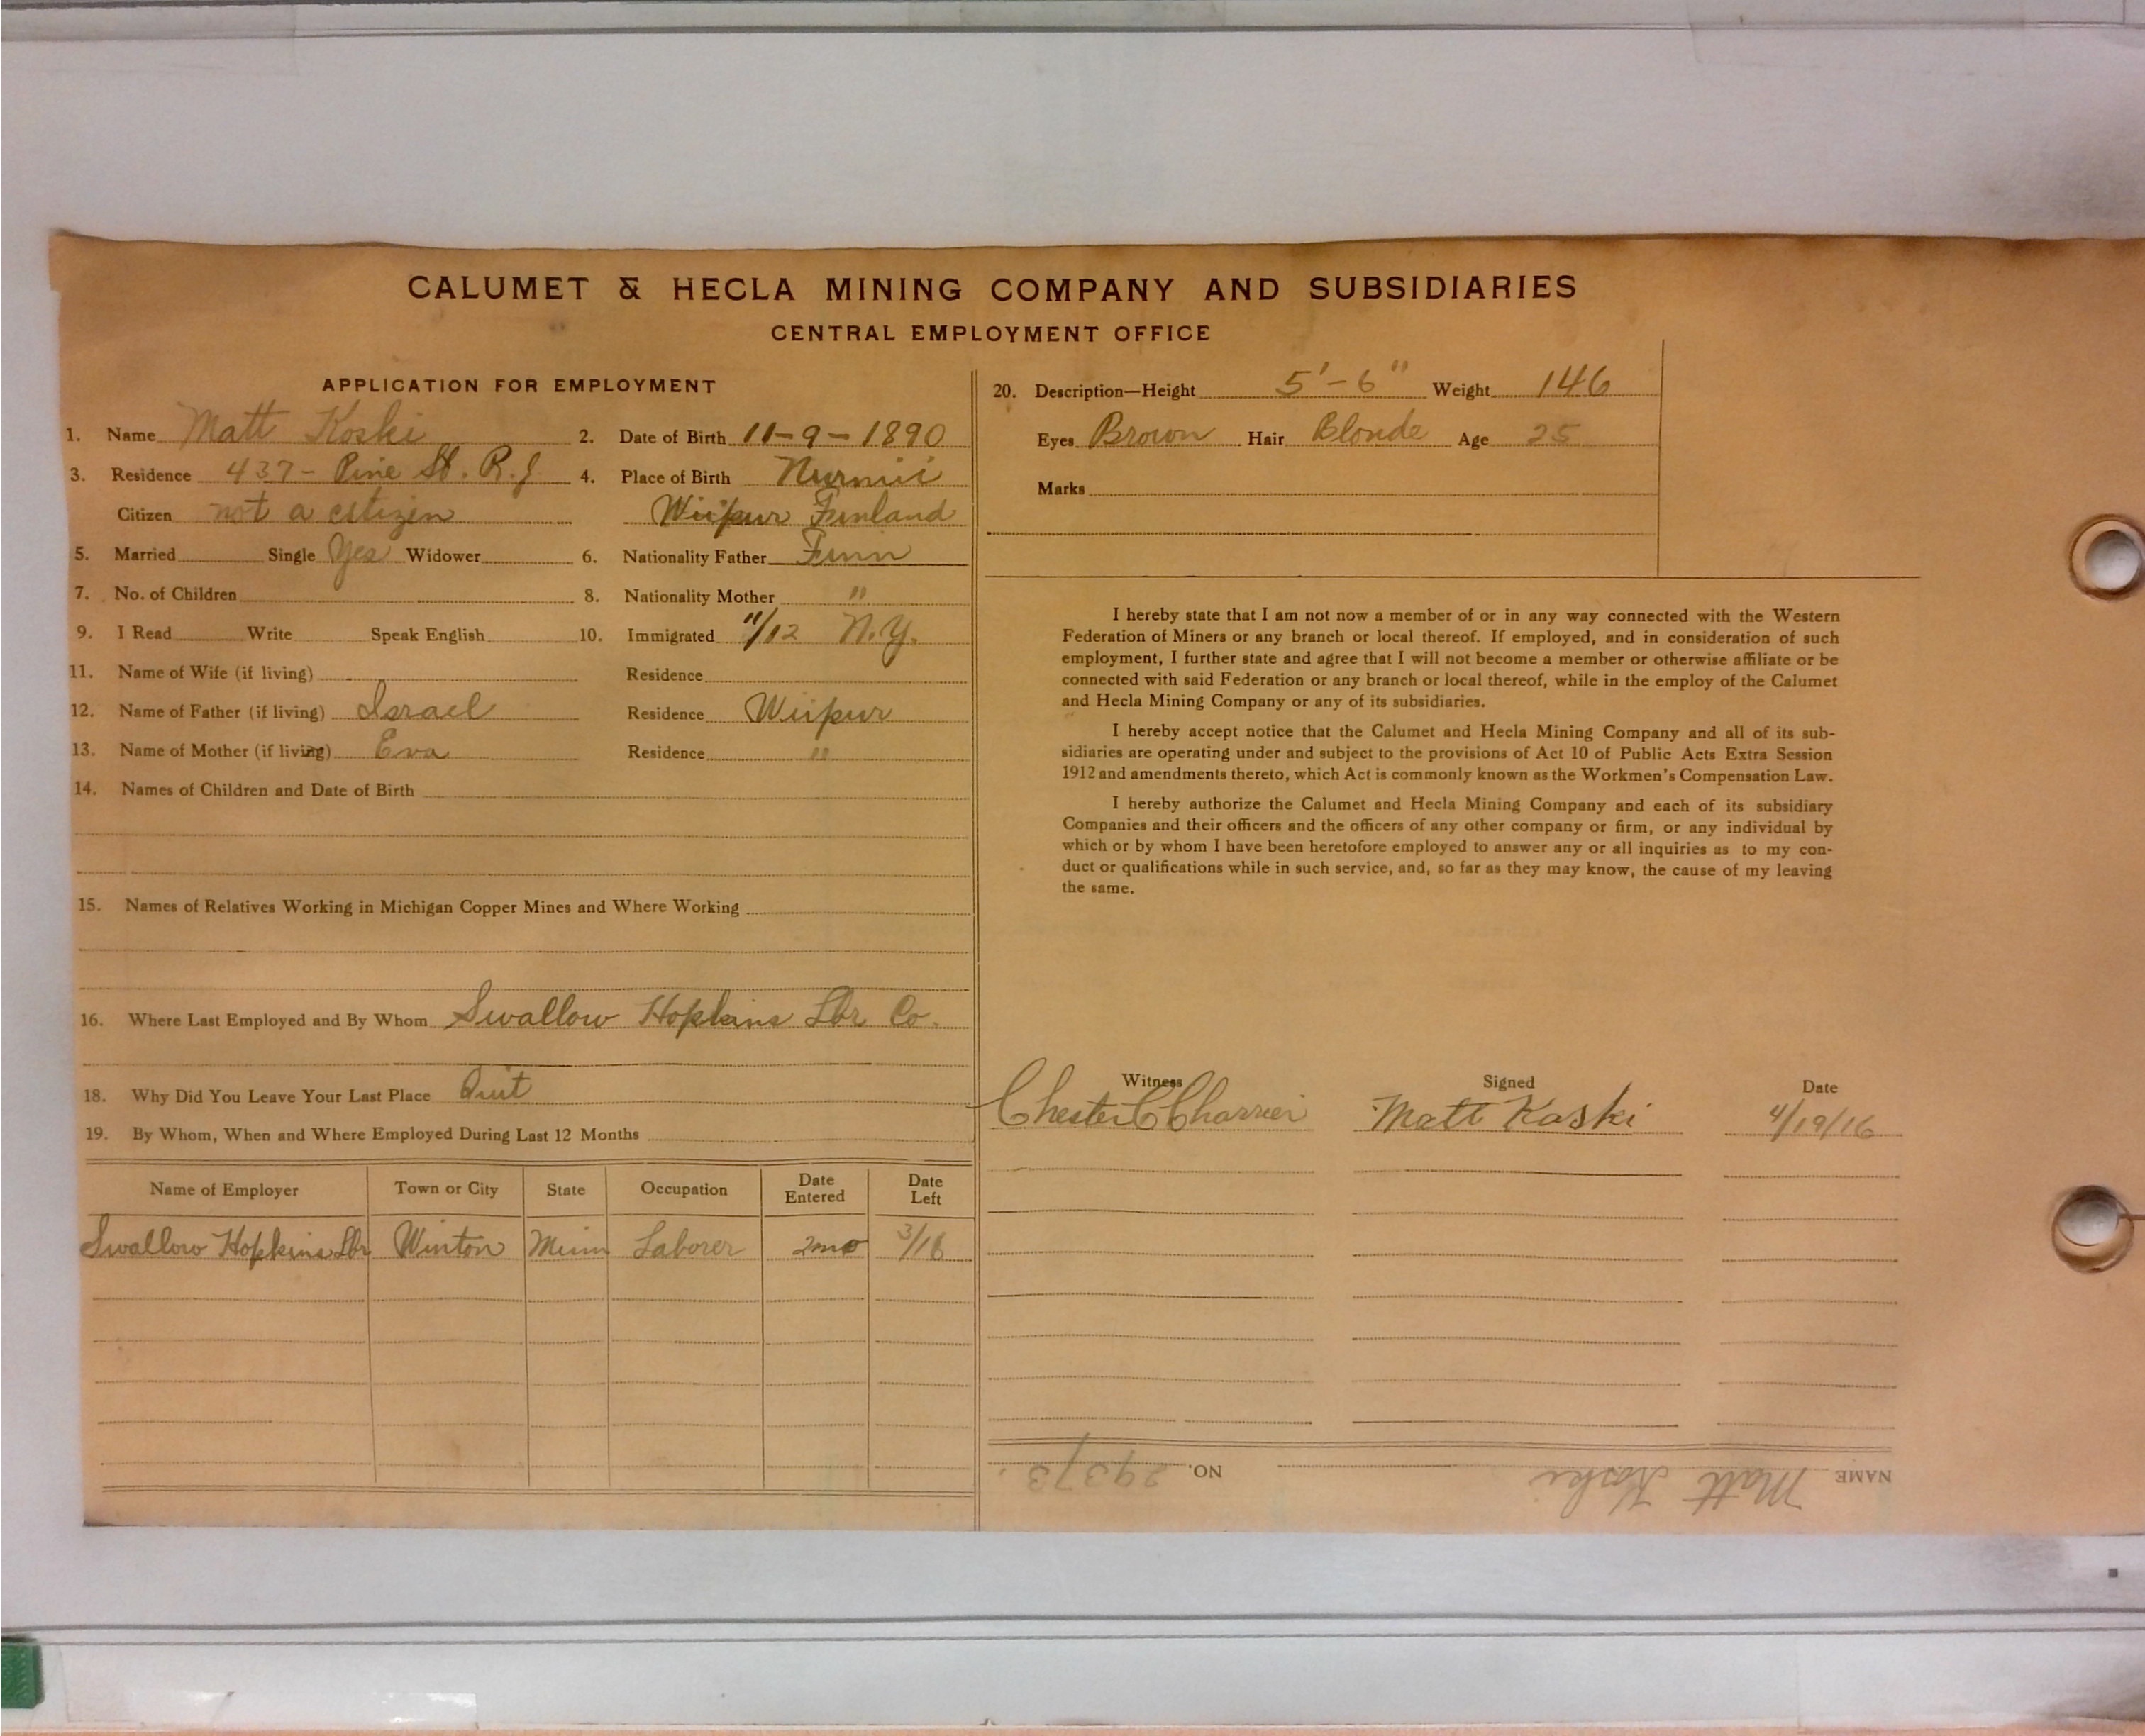 CALUMET & HECLA MINING COMPANY AND SUBSIDIARIES
CENTRAL EMPLOYMENT OFFICE
APPLICATION FOR EMPLOYMENT
1. Name Matt Koski 2. Date of Birth 11-9-1890
3. Residence 437- Pine St. R.J. 4. Place of Birth Nurmii
Citizen not a citizen Wiipur Finland
5. Married Single Yes Widower 6. Nationality Father Finn
7. No. of Children 8. Nationality Mother "
9. I Read Write Speak English 10. Immigrated 11/12 N.Y.
11. Name of Wife (if living) Residence
12. Name of Father (if living) Israel Residence Wiipur
13. Name of Mother (if living) Eva Residence "
14. Names of Children and Date of Birth
15. Names of Relatives Working in Michigan Copper Mines and Where Working
16. Where Last Employed and By Whom Swallow Hopkins Lbr Co.
18. Why Did You Leave Your Last Place Quit
19. By Whom, When and Where Employed During Last 12 Months
Name of Employer Town or City State Occupation Date Entered Date Left
Swallow Hopkins Lbr Winton Minn Laborer 2mo 3/16
20. Description—Height 5'-6" Weight 146
Eyes Brown Hair Blonde Age 25
Marks
I hereby state that I am not now a member of or in any way connected with the Western
Federation of Miners or any branch or local thereof. If employed, and in consideration of such
employment, I further state and agree that I will not become a member or otherwise affiliate or be
connected with said Federation or any branch or local thereof, while in the employ of the Calumet
and Hecla Mining Company or any of its subsidiaries.
I hereby accept notice that the Calumet and Hecla Mining Company and all of its sub-
sidiaries are operating under and subject to the provisions of Act 10 of Public Acts Extra Session
1912 and amendments thereto, which Act is commonly known as the Workmen's Compensation Law.
I hereby authorize the Calumet and Hecla Mining Company and each of its subsidiary
Companies and their officers and the officers of any other company or firm, or any individual by
which or by whom I have been heretofore employed to answer any or all inquiries as to my con-
duct or qualifications while in such service, and, so far as they may know, the cause of my leaving
the same.
Witness Signed Date
Chester C Matt Koski 4/19/16
NAME Matt Koski NO. 29373